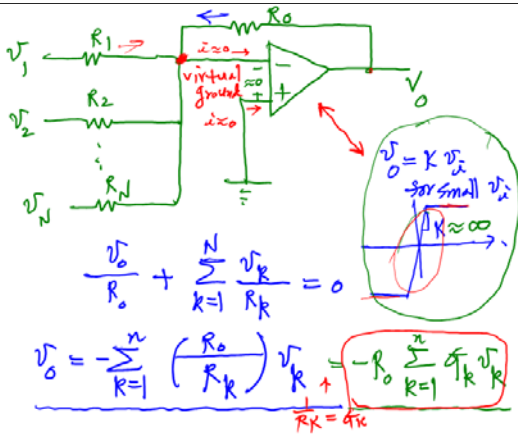 R₀
R₁
v₁
i≈0
virtual ground
≈0
i≈0
−
−
+
+
V₀
R₂
v₂
R_N
v_N
v₀ = K vᵢ
for small vᵢ
K ≈ ∞
v₀/R₀ + ∑_{k=1}^{N} v_k/R_k = 0
v₀ = -∑_{k=1}^{n} (R₀/R_k) v_k = -R₀ ∑_{k=1}^{n} G_k v_k
1/R_K = G_k